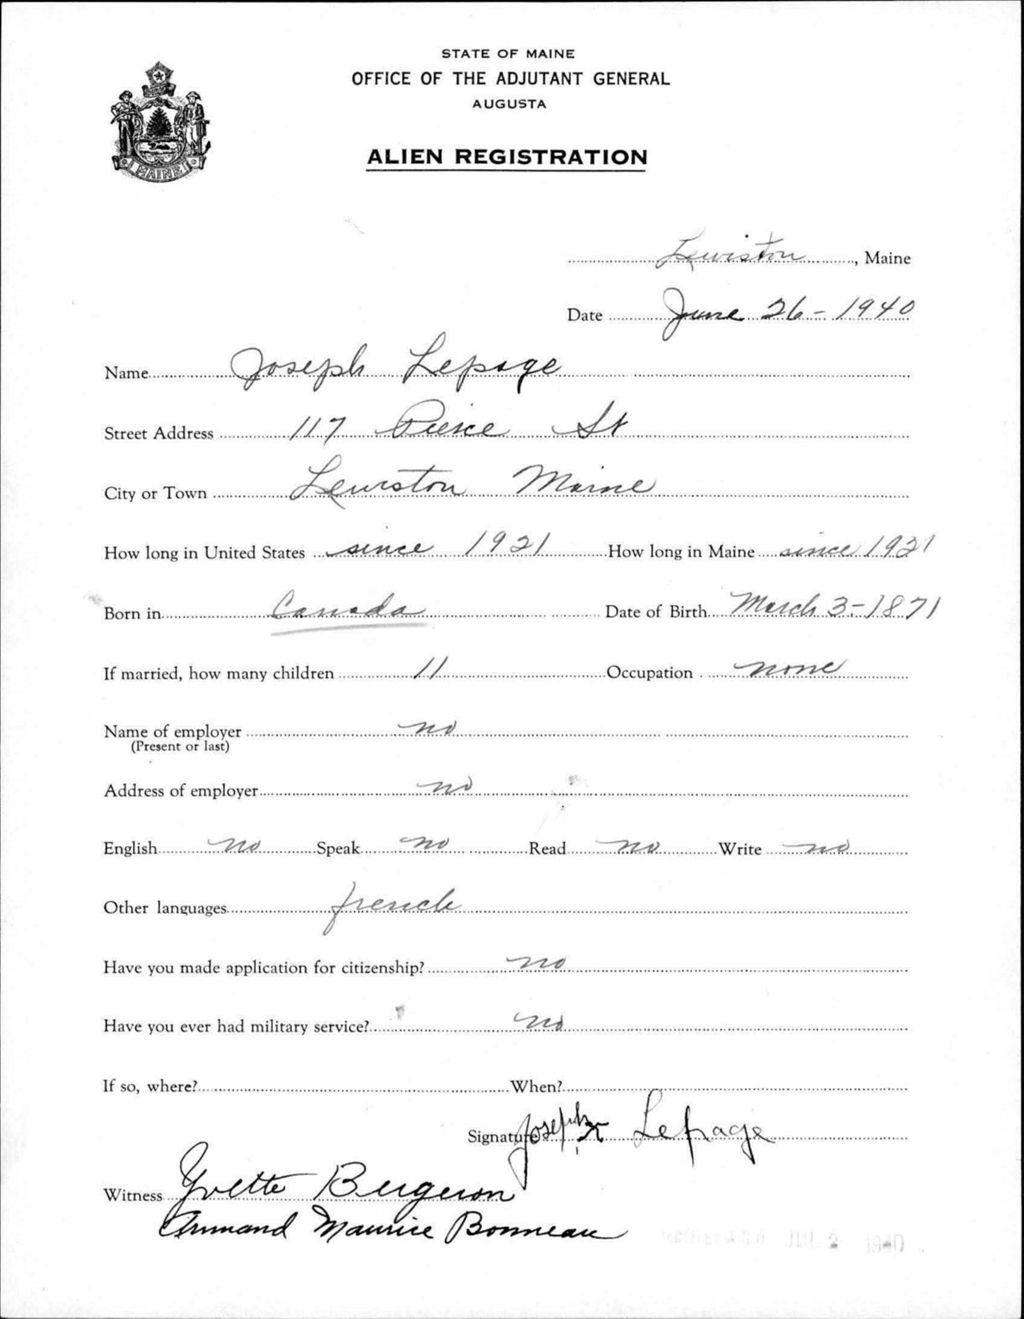 STATE OF MAINE
OFFICE OF THE ADJUTANT GENERAL
AUGUSTA
ALIEN REGISTRATION
MAINE
Lewiston, Maine
Date June 26-1940
Name Joseph Lepage
Street Address 117 Pierce St
City or Town Lewiston Maine
How long in United States since 1921 How long in Maine since 1921
Born in Canada Date of Birth March 3-1871
If married, how many children 11 Occupation none
Name of employer no
(Present or last)
Address of employer no
English no Speak no Read no Write no
Other languages french
Have you made application for citizenship? no
Have you ever had military service? no
If so, where? When?
Signature Joseph X Lepage
Witness Yvette Bergeron
Armand Maurice Bonneau
JUL 2 1940